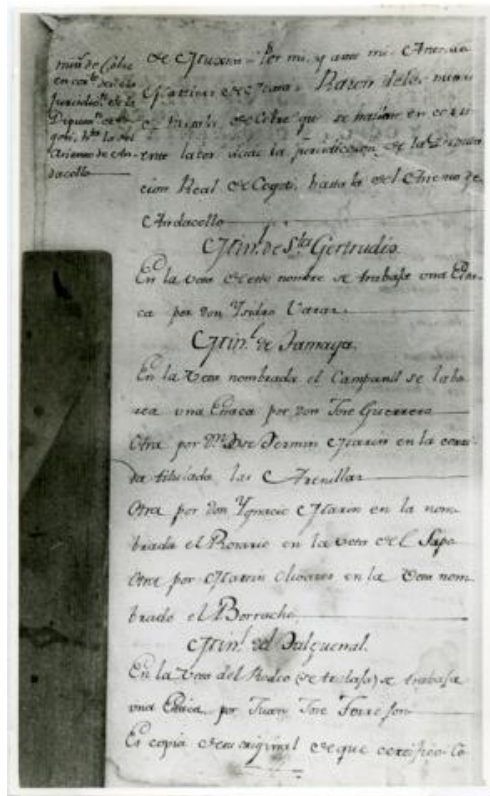 min.s de Cobre
en cor.te desde la
Jurisdic.n de la
Diputac.n de Co
goti, h.ta la del
Asiento de An
dacollo
por mi, y ante mi
Razon de las minas
de Cobre que se hallan en corri
ente labor desde la jurisdiccion de la Diputa
cion Real de Cogoti, hasta la del Asiento de
Andacollo
Min.l de S.ta Gertrudis.
En la veta de este nombre se trabaja una Esta
ca por don Ysidro Varas.
Min.l de Tamaya.
En la Veta nombrada el Campanil se labo
rea una Estaca por don Jose Guerrero
Otra por D.n Jose Fermin Marin en la corri
da titulada las Arenillas
Otra por don Ygnacio Marin en la nom
brada el Rosario en la veta del Sapo
Otra por Martin Olivares en la Veta nom
brada el Borracho.
Min.l del
En la Veta del Rodeo se trabaja
una Estaca por Juan Jose
Es copia de su original de que certifico Co